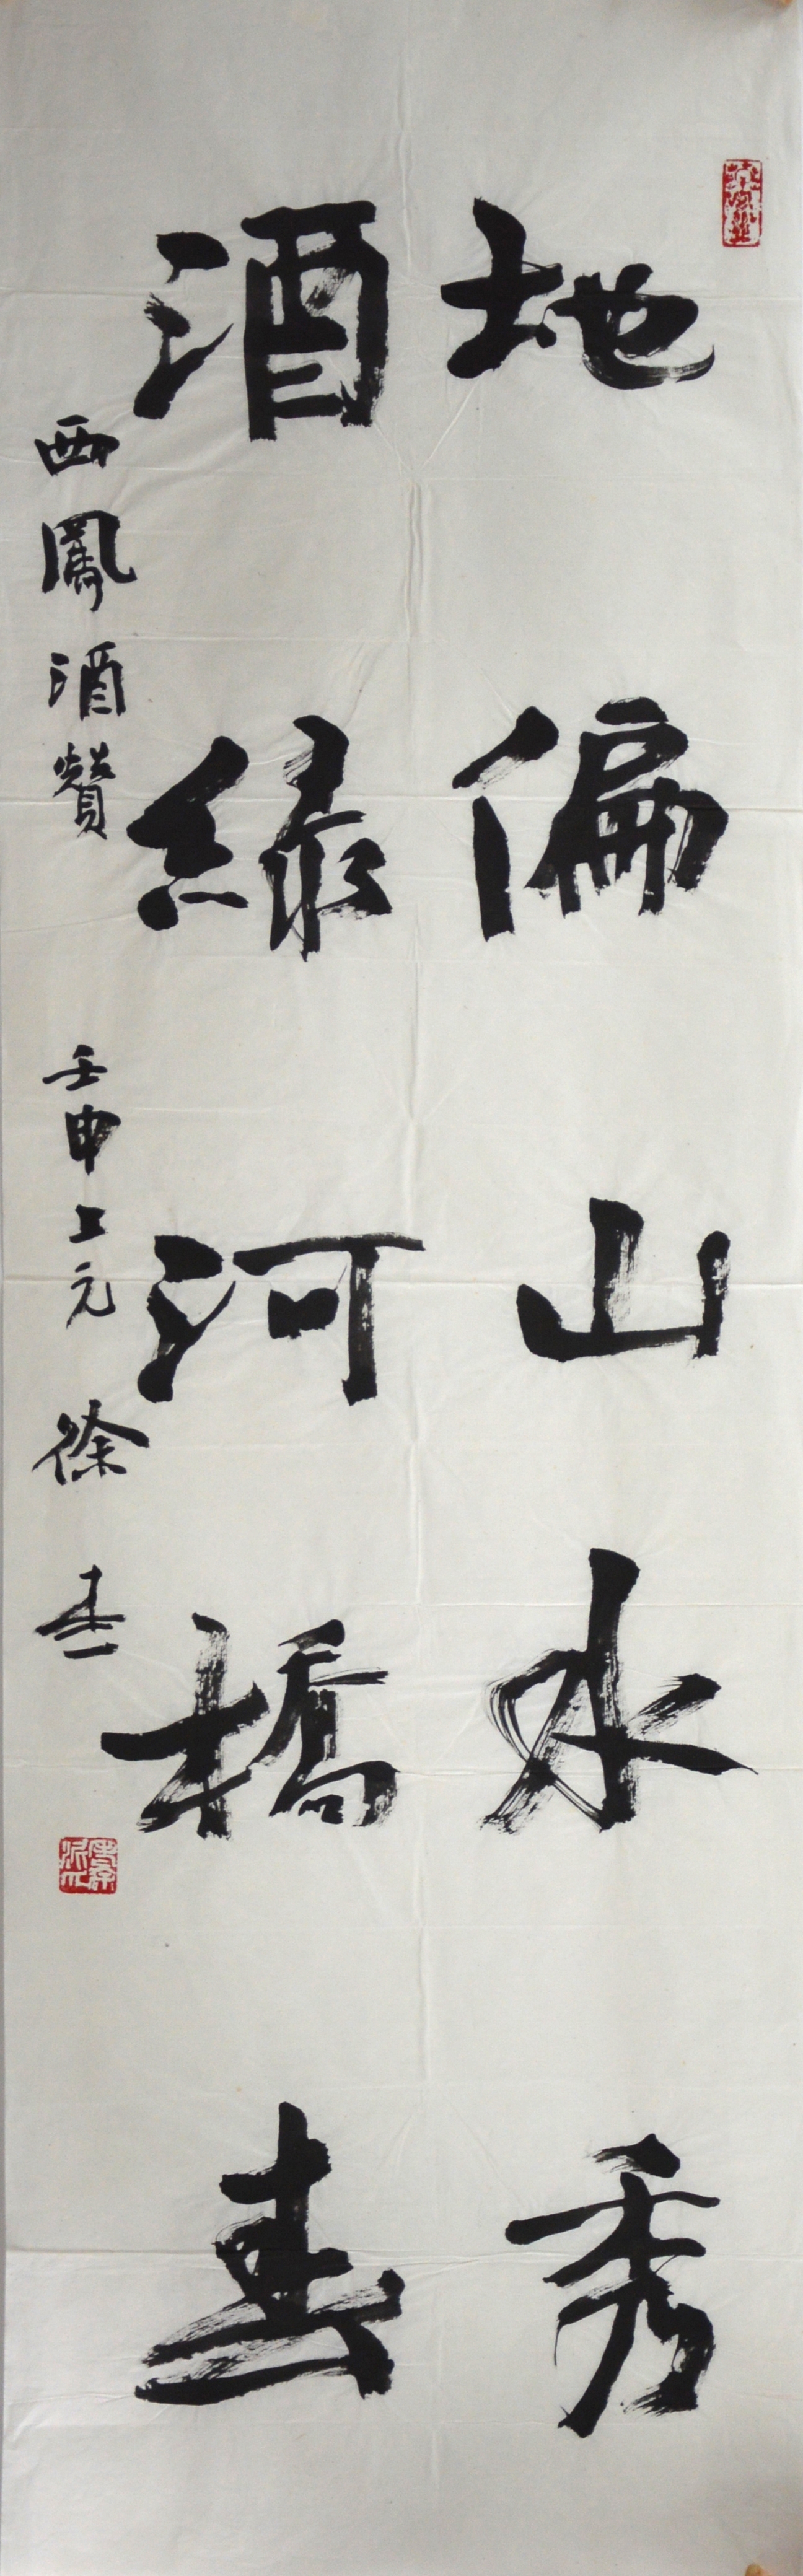 地偏山水秀
酒綠河橋春
西鳳酒贊 壬申上元 徐